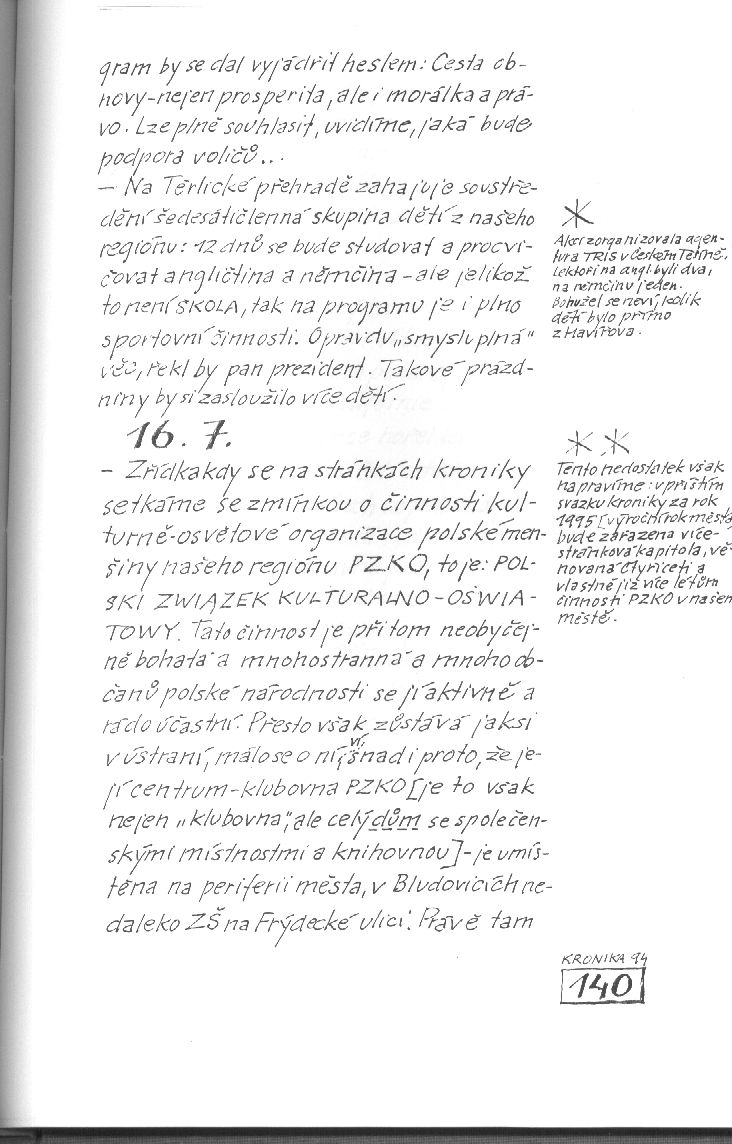 gram by se dal vyjádřit heslem: Cesta ob-
novy-nejen prosperita, ale i morálka a prá-
vo. Lze plně souhlasit, uvidíme, jaká bude
podpora voličů...
– Na Těrlické přehradě zahajuje soustře-
dění šedesátičlenná skupina dětí z našeho
regiónu: 12 dnů se bude studovat a procvi-
čovat angličtina a němčina – ale jelikož
to není ŠKOLA, tak na programu je i plno
sportovní činnosti. Opravdu „smysluplná"
věc, řekl by pan prezident. Takové prázd-
niny by si zasloužilo více dětí.
16. 7.
– Zřídkakdy se na stránkách kroniky
setkáme se zmínkou o činnosti kul-
turně-osvětové organizace polské men-
šiny našeho regiónu PZKO, to je: POL-
SKI ZWIĄZEK KULTURALNO-OŚWIA-
TOWY. Tato činnost je přitom neobyčej-
ně bohatá a mnohostranná a mnoho ob-
čanů polské národnosti se jí aktivně a
rádo účastní. Přesto však zůstává jaksi
v ústraní, málo se o ní ví, snad i proto, že je-
jí centrum-klubovna PZKO [je to však
nejen „klubovna", ale celý dům se společen-
skými místnostmi a knihovnou] – je umís-
těna na periferii města, v Bludovicích ne-
daleko ZŠ na Frýdecké ulici. Právě tam
*
Akci zorganizovala agen-
tura TRIS v Českém Těšíně.
Lektoři na angl. byli dva,
na němčinu jeden.
Bohužel se neví, kolik
dětí bylo přímo
z Havířova.
* *
Tento nedostatek však
napravíme: v příštím
svazku kroniky za rok
1995 [výroční rok města]
bude zařazena více-
stránková kapitola, vě-
novaná čtyřiceti a
vlastně již více letům
činnosti PZKO v našem
městě.
KRONIKA 94
140